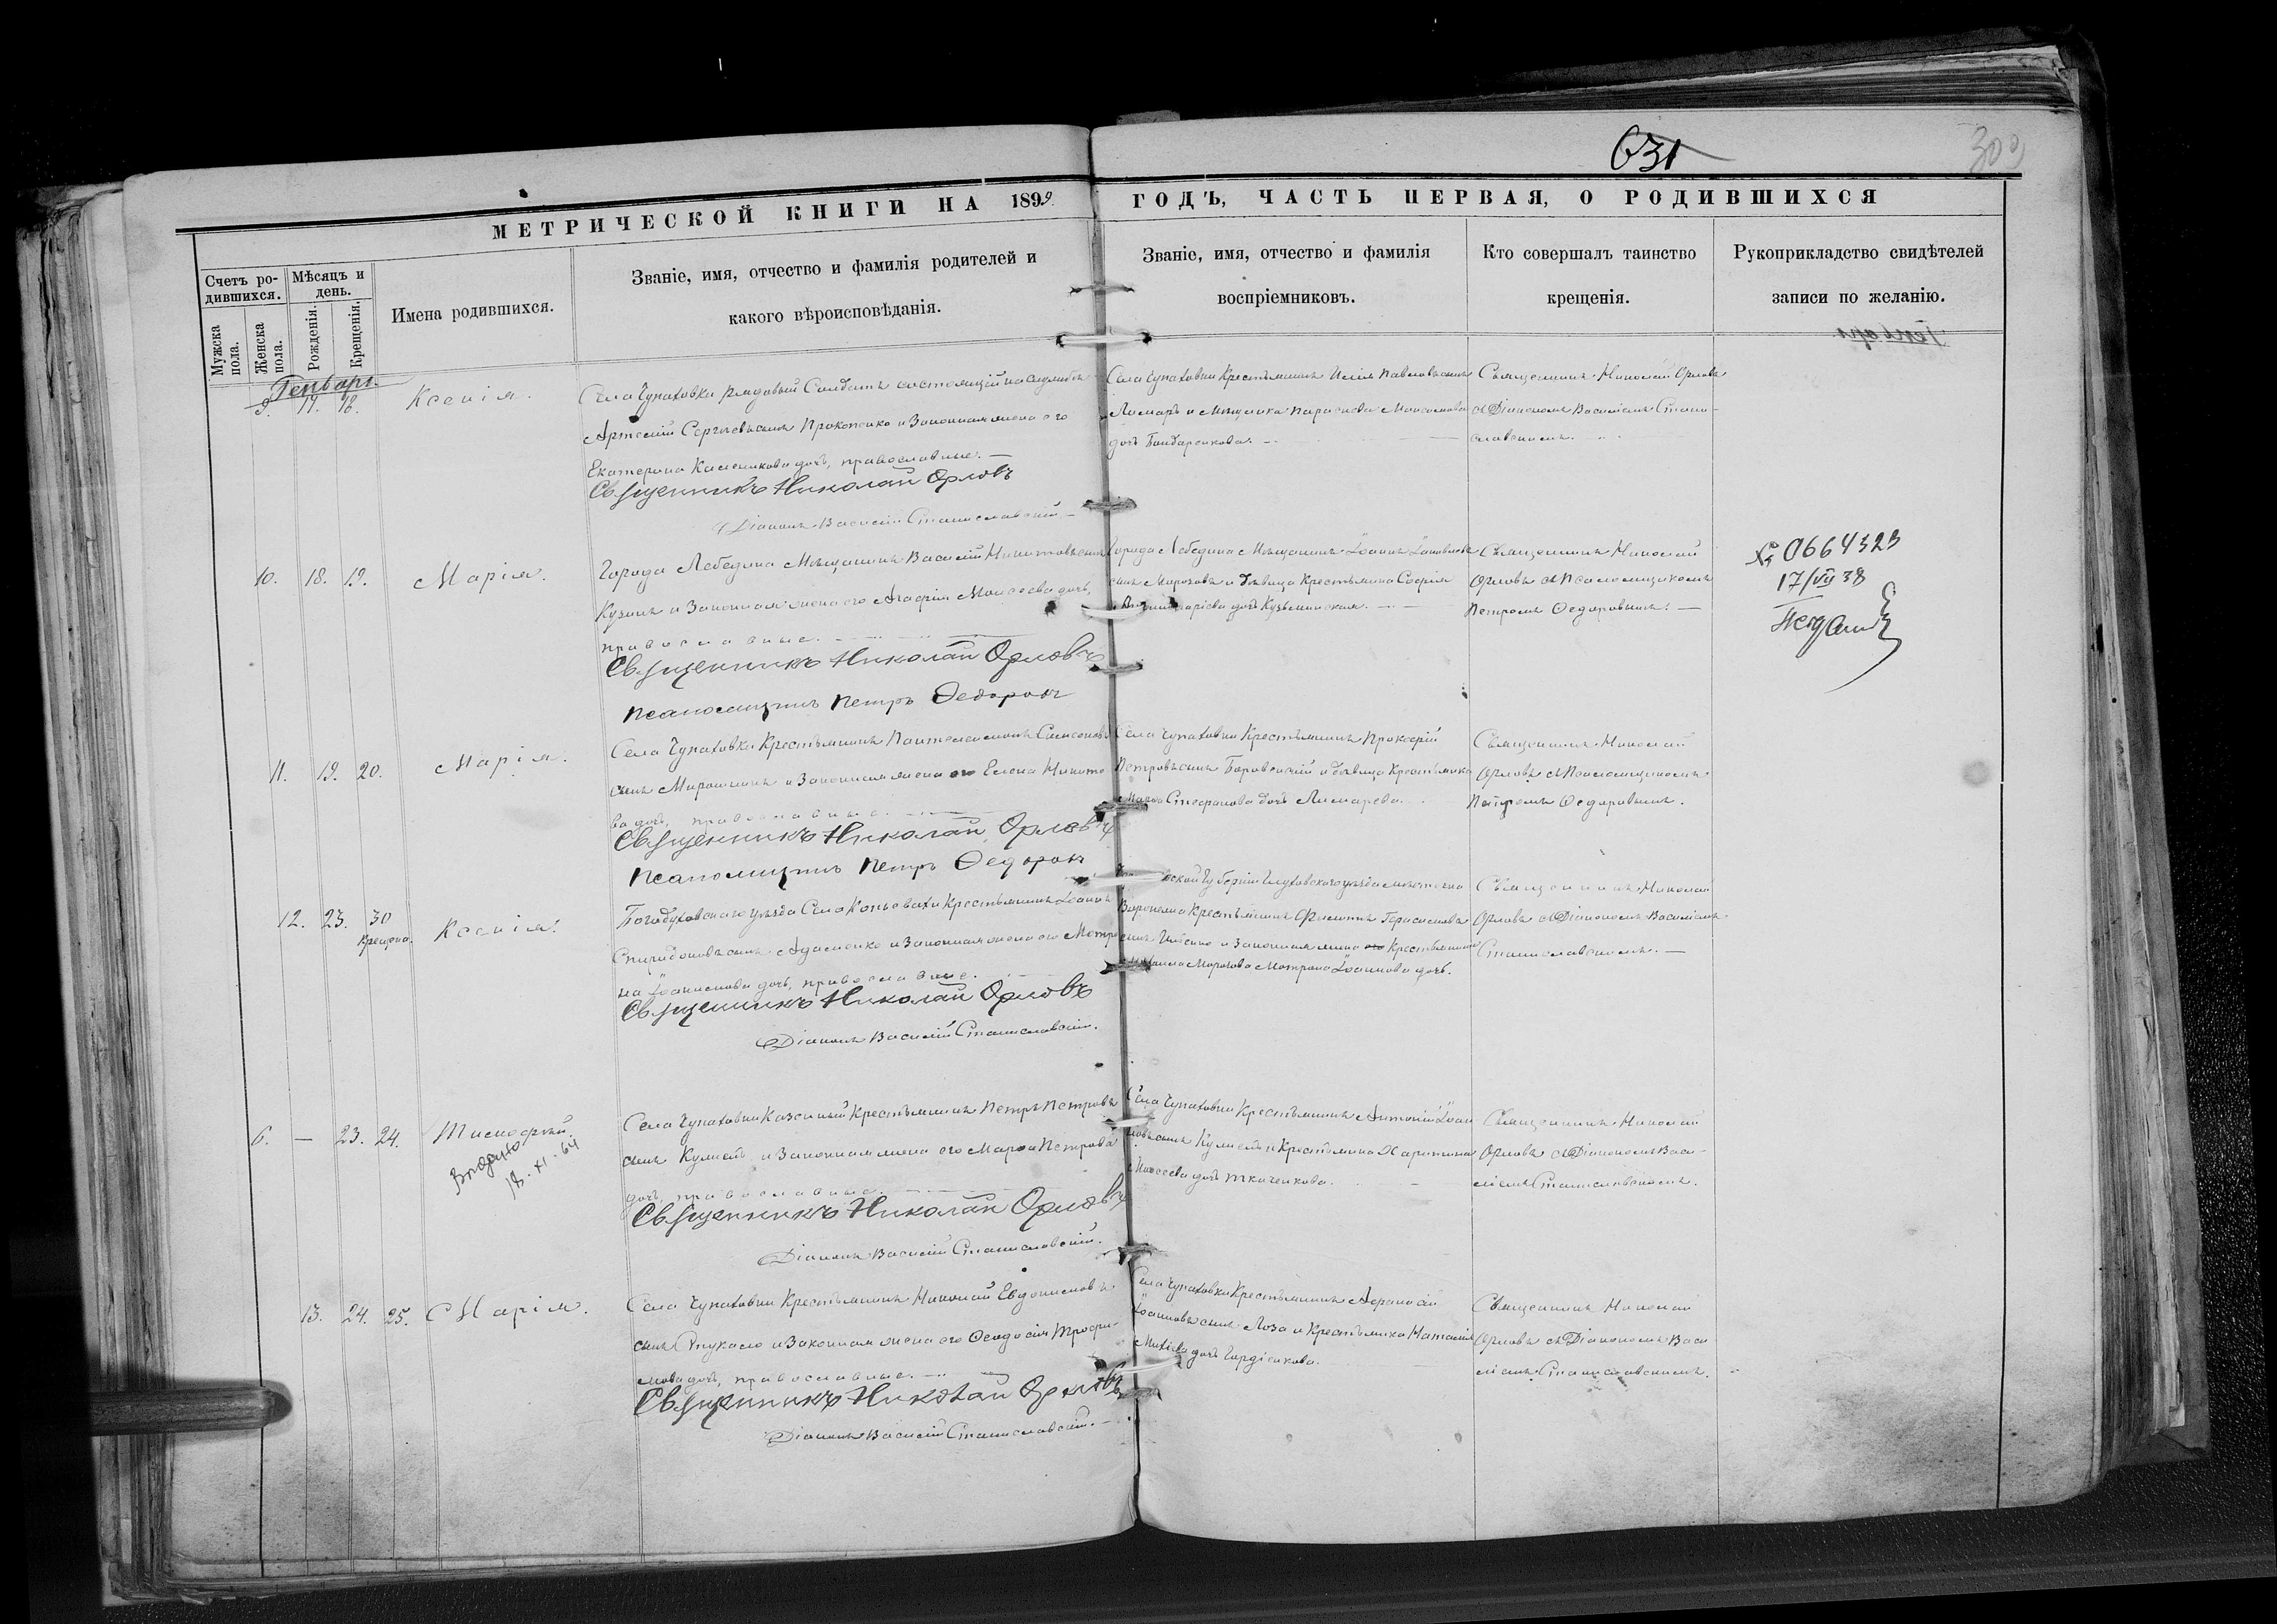 631
300
МЕТРИЧЕСКОЙ КНИГИ НА 1899 ГОДЪ, ЧАСТЬ ПЕРВАЯ, О РОДИВШИХСЯ
Счетъ ро-
дившихся.
Мужска
пола.
Женска
пола.
Мѣсяцъ и
день.
Рожденія.
Крещенія.
Имена родившихся.
Званіе, имя, отчество и фамилія родителей и
какого вѣроисповѣданія.
Званіе, имя, отчество и фамилія
воспріемниковъ.
Кто совершалъ таинство
крещенія.
Рукоприкладство свидѣтелей
записи по желанію.
Генварь.
9. 17. 18. Ксенія.
Села Чупаховки рядовый Солдатъ состоящій на службѣ
Артемій Сергѣевъ сынъ Прокопенко и Законная жена его
Екатерина дочь, православные.
Священникъ Николай Орловъ
Діаконъ Василій Станиславскій
Села Чупаховки Крестьянинъ Илія Павловъ сынъ
Лимарь и Мѣщанка Параскева Максимова
дочь Бондаренкова.
Священникъ Николай Орловъ
съ Діакономъ Василіемъ Стани-
славскимъ.
10. 18. 19. Марія.
Города Лебедина Мѣщанинъ Василій Никитовъ сынъ
Кузинъ и Законная жена его Агафія Моисеева дочь,
православные.
Священникъ Николай Орловъ
Псаломщикъ Петръ Ѳедоровъ
Города Лебедина Мѣщанинъ Іоаннъ Іаковлевъ
сынъ Морозовъ и дѣвица Крестьянка Софія
дочь Кузьминская.
Священникъ Николай
Орловъ съ Псаломщикомъ
Петромъ Ѳедоровымъ.
№ 0664323
17/VII 38
11. 19. 20. Марія.
Села Чупаховки Крестьянинъ Пантелеимонъ Самсоновъ
сынъ Мирошникъ и Законная жена его Елена Никито
ва дочь, православные.
Священникъ Николай Орловъ
Псаломщикъ Петръ Ѳедоровъ
Села Чупаховки Крестьянинъ Прокофій
Петровъ сынъ Боровенскій и дѣвица Крестьянка
Марѳа Стефанова дочь Лимарева.
Священникъ Николай
Орловъ съ Псаломщикомъ
Петромъ Ѳедоровымъ.
12. 23. 30 Ксенія.
Крещена.
Богодуховскаго уѣзда Села Копьевахи Крестьянинъ Іоаннъ
Спиридоновъ сынъ Адаменко и Законная жена его Матро
на Іоаникіова дочь, православные.
Священникъ Николай Орловъ
Діаконъ Василій Станиславскій.
Губерніи Глуховскаго уѣзда мѣстечка
Воронежа Крестьянинъ Филиппъ Герасимовъ
сынъ Ивенко и Законная жена его Крестьянина
Морозова Матрона Іоаннова дочь.
Священникъ Николай
Орловъ съ Діакономъ Василіемъ
Станиславскимъ.
6. — 23. 24. Тимофей.
18.XI.64
Села Чупаховки Казенный Крестьянинъ Петръ Петровъ
сынъ Кулишъ и Законная жена его Марѳа Петрова
дочь, православные.
Священникъ Николай Орловъ
Діаконъ Василій Станиславскій.
Села Чупаховки Крестьянинъ Антоній Іоан
новъ сынъ Кулишъ и Крестьянка Харитина
Моисеева дочь Ткаченкова.
Священникъ Николай
Орловъ съ Діакономъ Васи-
ліемъ Станиславскимъ.
13. 24. 25. Марія.
Села Чупаховки Крестьянинъ Николай Евдокимовъ
сынъ Стукало и Законная жена его Ѳеодосія Трофи-
мова дочь, православные.
Священникъ Николай Орловъ
Діаконъ Василій Станиславскій.
Села Чупаховки Крестьянинъ Афанасій
Іоанновъ сынъ Лоза и Крестьянка Наталія
Михѣева дочь Гордіенкова.
Священникъ Николай
Орловъ съ Діакономъ Васи
ліемъ Станиславскимъ.